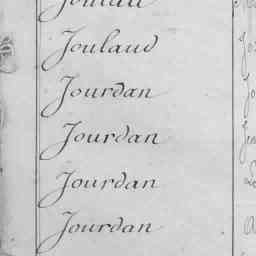 Joulaud
Jourdan
Jourdan
Jourdan
Jourdan